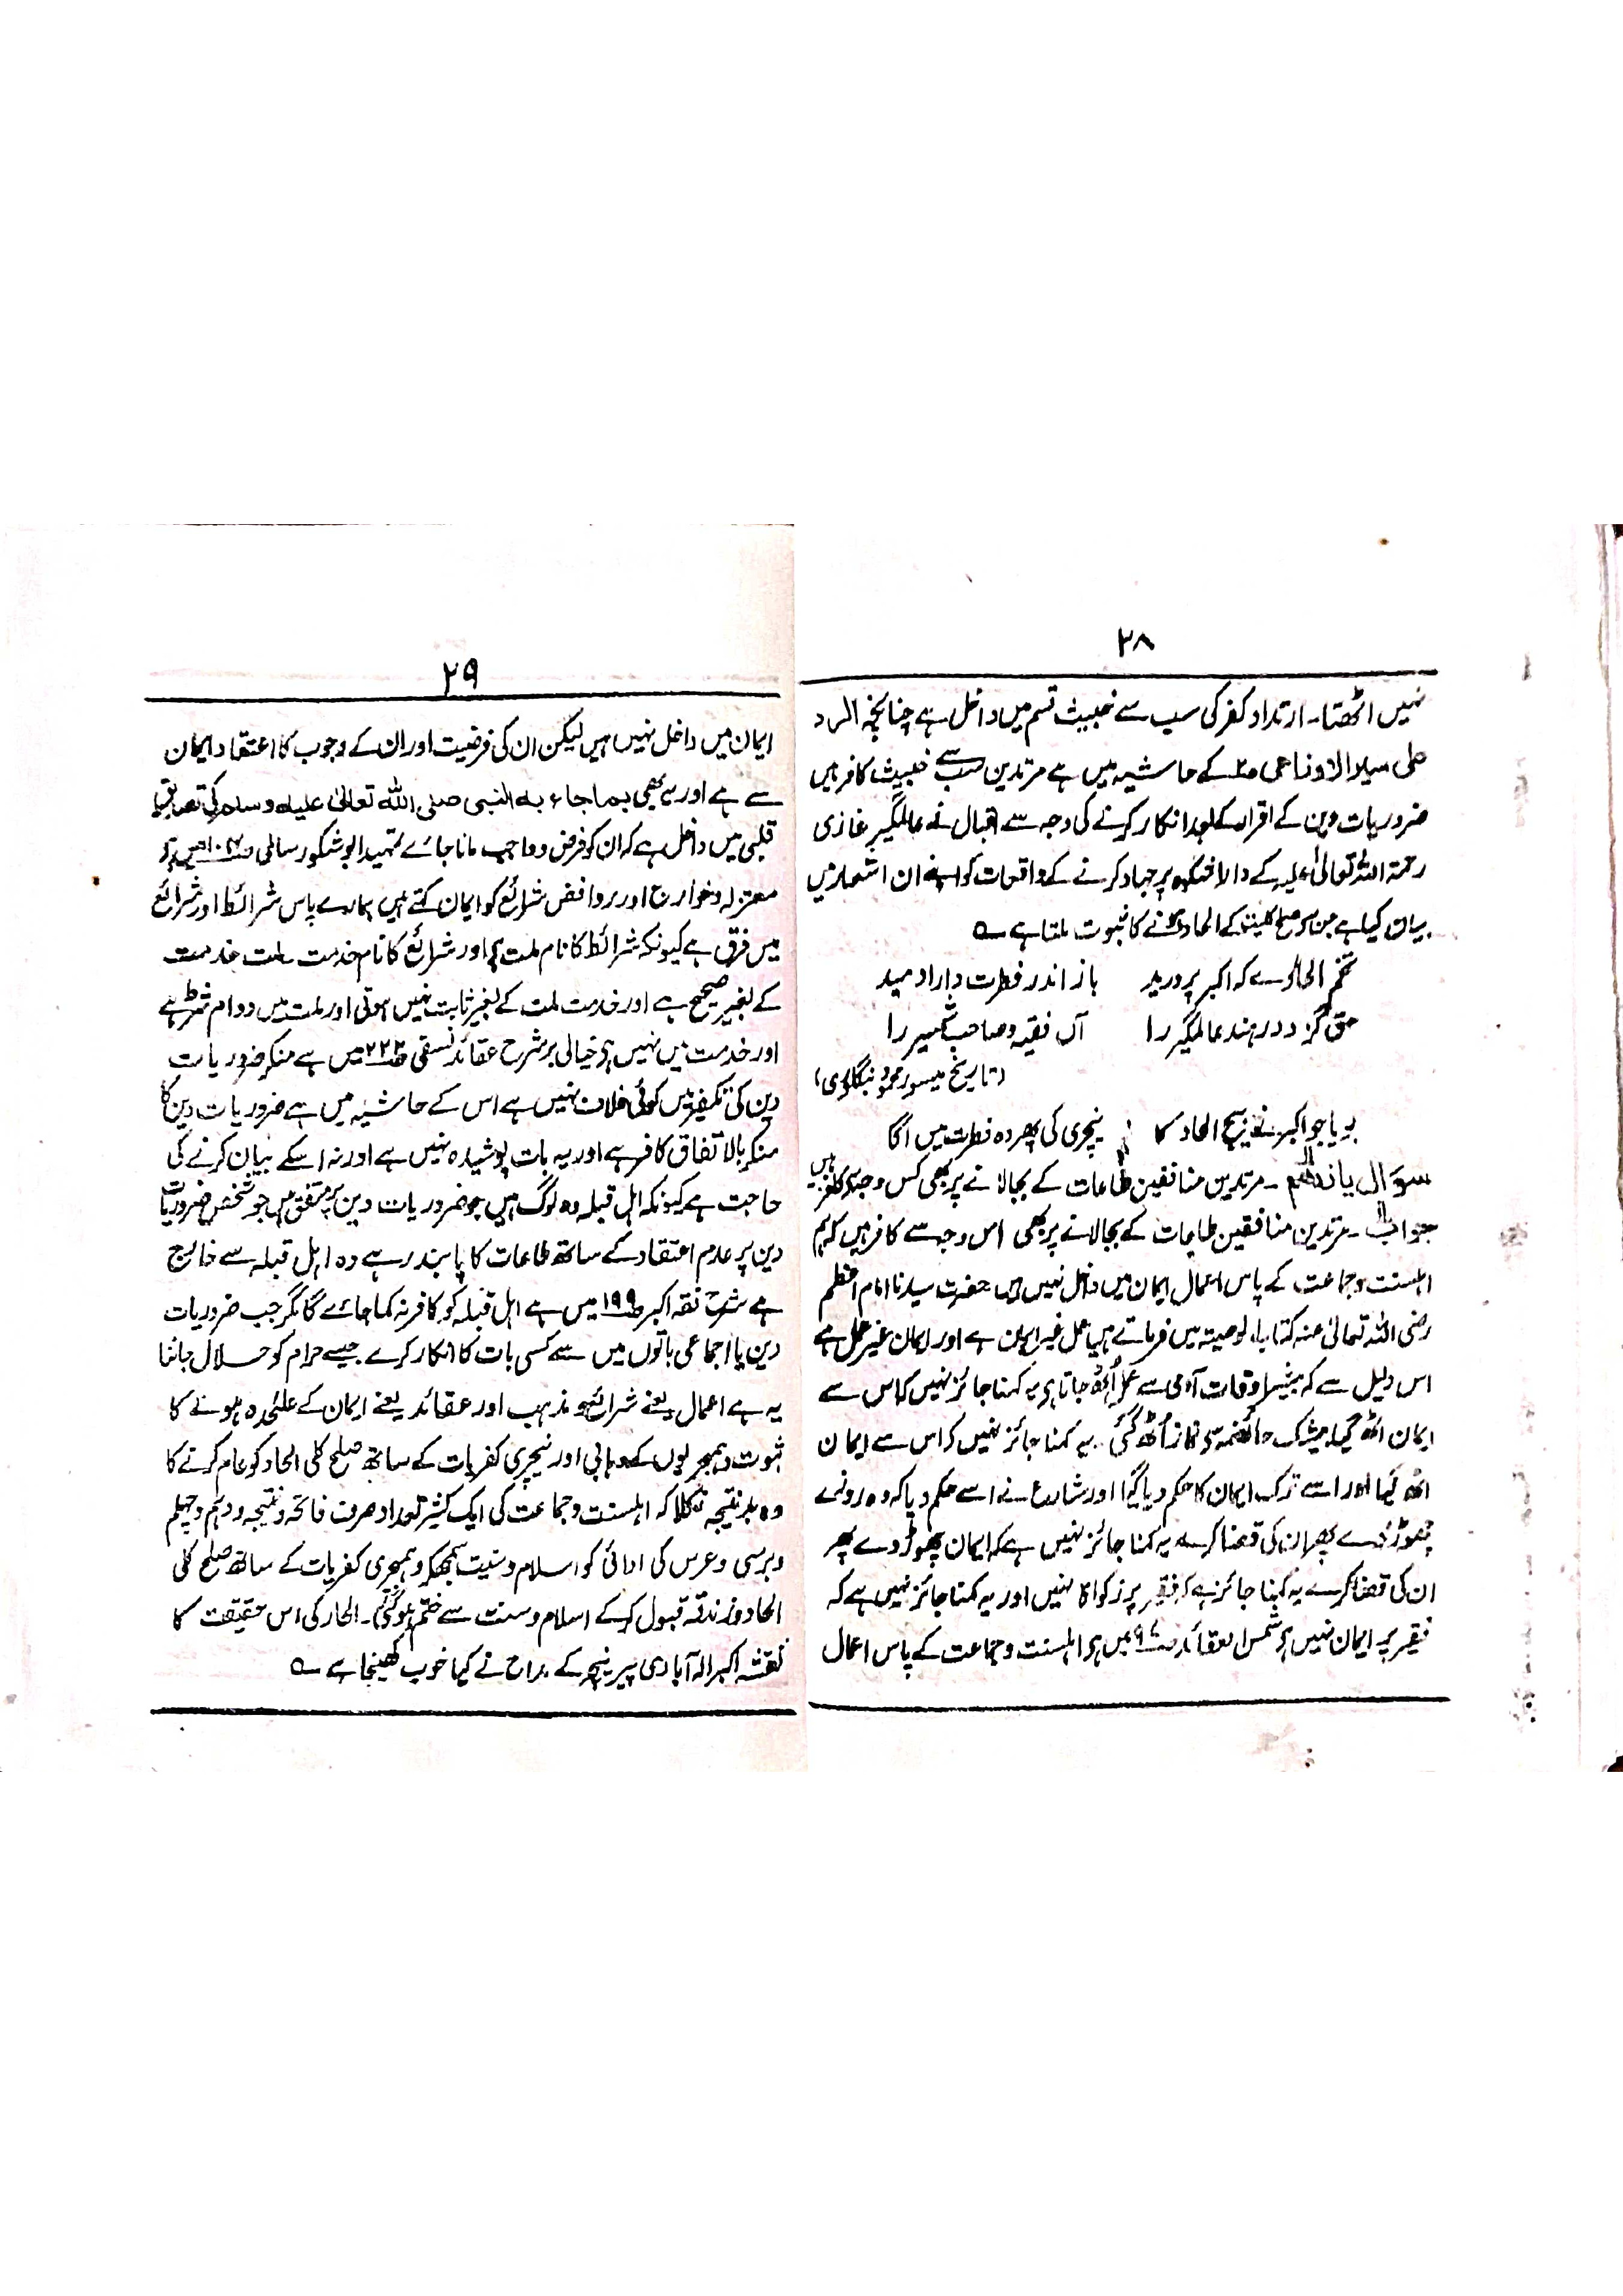 ۲۸
نہیں اٹھتا۔ ارتداد کفر کی سب سے خبیث قسم میں داخل ہے چنانچہ الرد
علی میلاد الزوناحی کے حاشیہ میں ہے مرتدین سب سے خبیث کافر ہیں
ضروریات دین کے اقرار کے بعد انکار کرنے کی وجہ سے اقبال نے عالمگیر غازی
رحمۃ اللہ تعالیٰ علیہ کے دارا شکوہ پر جہاد کرنے کے واقعات کو اپنے ان اشعار میں
بیان کیا ہے جن سے صلح کلیت کے الحاد ہونے کا ثبوت ملتا ہے ؎
تخم الحادے کہ اکبر پرورید باز اندر فطرت دارا دمید
حق گزید در ہند عالمگیر را آں فقیر و صاحب شمشیر را
(تاریخ میسور محمود بنگلوری)
بویا جو اکبر نے بیج الحاد کا نیچری کی پھر وہ فطرت میں اگا
سوال یازدہم ۔ مرتدین منافقین طاعات کے بجا لانے پر بھی کس وجہ سے کافر ہیں
جواب ۔ مرتدین منافقین طاعات کے بجا لانے پر بھی اس وجہ سے کافر ہیں کہ ہم
اہلسنت وجماعت کے پاس اعمال ایمان میں داخل نہیں ہیں حضرت سیدنا امام اعظم
رضی اللہ تعالیٰ عنہ کتاب الوصیتہ میں فرماتے ہیں عمل غیر ایمان ہے اور ایمان غیر عمل ہے
اس دلیل سے کہ بیشتر اوقات آدمی سے عمل اُٹھ جاتا ہے یہ کہنا جائز نہیں کہ اس سے
ایمان اٹھ گیا بیشک حائضہ سے نماز اُٹھ گئی یہ کہنا جائز نہیں کہ اس سے ایمان
اٹھ گیا اور اسے ترک ایمان کا حکم دیا گیا اور شارع نے اسے حکم دیا کہ وہ روزے
چھوڑ دے پھر ان کی قضا کرے یہ کہنا جائز نہیں ہے کہ ایمان چھوڑ دے پھر
ان کی قضا کرے یہ کہنا جائز ہے کہ فقیر پر زکواۃ نہیں اور یہ کہنا جائز نہیں ہے کہ
فقیر پر ایمان نہیں ہے شمس العقائد ص۹۷ میں ہے اہلسنت وجماعت کے پاس اعمال
۲۹
ایمان میں داخل نہیں ہیں لیکن ان کی فرضیت اور ان کے وجوب کا اعتقاد ایمان
سے ہے اور یہ بھی بما جاء بہ النبی صلی اللہ تعالیٰ علیہ وسلم کی تصدیق
قلبی میں داخل ہے کہ ان کو فرض و واجب مانا جائے تمہید ابو شکور سالمی میں ہے
معتزلہ و خوارج اور روافض شرائع کو ایمان کہتے ہیں ہمارے پاس شرائط اور شرائع
میں فرق ہے کیونکہ شرائط کا نام ملت ہے اور شرائع کا نام خدمت ۔ ملت خدمت
کے بغیر صحیح ہے اور خدمت ملت کے بغیر ثابت نہیں ہوتی اور ملت میں دوام شرط ہے
اور خدمت میں نہیں ہے خیالی بر شرح عقائد نسفی ص۲۲۲ میں ہے منکر ضروریات
دین کی تکفیر میں کوئی خلاف نہیں ہے اس کے حاشیہ میں ہے ضروریات دین کا
منکر بالاتفاق کافر ہے اور یہ بات پوشیدہ نہیں ہے اور نہ اسکے بیان کرنے کی
حاجت ہے کیونکہ اہل قبلہ وہ لوگ ہیں جو ضروریات دین پر متفق ہیں جو شخص ضروریات
دین پر عدم اعتقاد کے ساتھ طاعات کا پابند رہے وہ اہل قبلہ سے خارج
ہے شرح فقہ اکبر ص۱۹۹ میں ہے اہل قبلہ کو کافر نہ کہا جائے گا مگر جب ضروریات
دین یا اجماعی باتوں میں سے کسی بات کا انکار کرے جیسے حرام کو حلال جاننا
یہ ہے اعمال یعنے شرائع و مذہب اور عقائد یعنے ایمان کے علٰحدہ ہونے کا
ثبوت ہمجریوں کے وہابی اور نیچری کفریات کے ساتھ صلح کلی الحاد کو عام کرنے کا
وہ بد نتیجہ نکلا کہ اہلسنت وجماعت کی ایک کثیر تعداد صرف فاتحہ و نتیجہ و دہم و چہلم
و برسی و عرس کی ادائی کو اسلام و سنیت سمجھکر و ہمجری کفریات کے ساتھ صلح کلی
الحاد و زندقہ قبول کر کے اسلام و سنت سے ختم ہو گئی۔ الحاد کی اس حقیقت کا
نقشہ اکبر الہ آبادی پیر نیچر کے مداح نے کیا خوب کھینچا ہے ؎